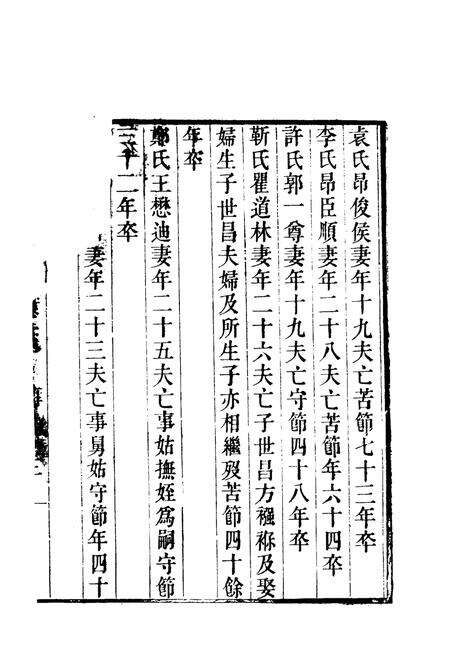 袁氏昂俊侯妻年十九夫亡苦節七十三年卒
李氏昂臣順妻年二十八夫亡苦節年六十四卒
許氏郭一尊妻年十九夫亡守節四十八年卒
靳氏瞿道林妻年二十六夫亡子世昌方襁褓及娶
婦生子世昌夫婦及所生子亦相繼歿苦節四十餘
年卒
鄭氏王懋迪妻年二十五夫亡事姑撫姪為嗣守節
三十二年卒
妻年二十三夫亡事舅姑守節年四十